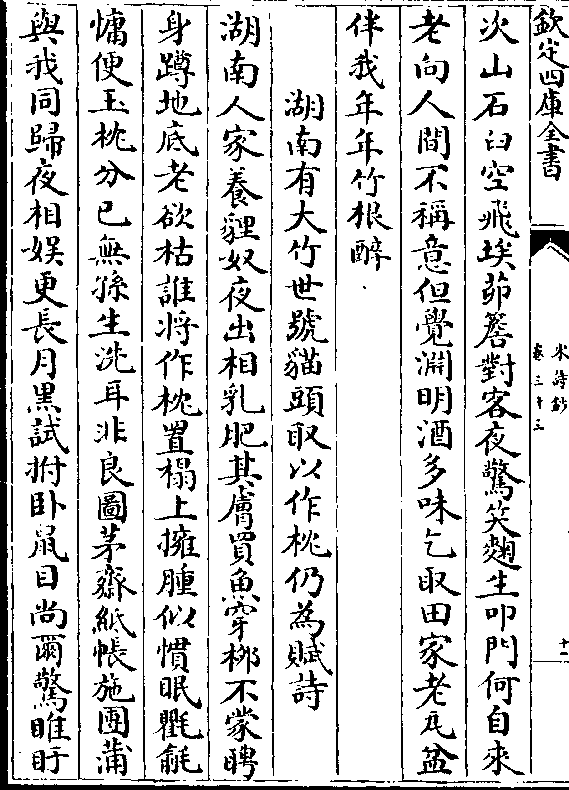 欽定四庫全書
宋詩鈔
卷三十三
十二
次山石臼空飛埃茆簷對客夜驚笑麴生叩門何自來
老向人間不稱意但覺淵明酒多味乞取田家老瓦盆
伴我年年竹根醉
湖南有大竹世號貓頭取以作枕仍為賦詩
湖南人家養貍奴夜出相乳肥其膚買魚穿柳不蒙聘
身蹲地底老欲枯誰將作枕置榻上擁腫似慣眠氍毹
慵便玉枕分已無孫生洗耳非良圖茅齋紙帳施團蒲
與我同歸夜相娛更長月黑試拊卧鼠目尚爾驚睢盱